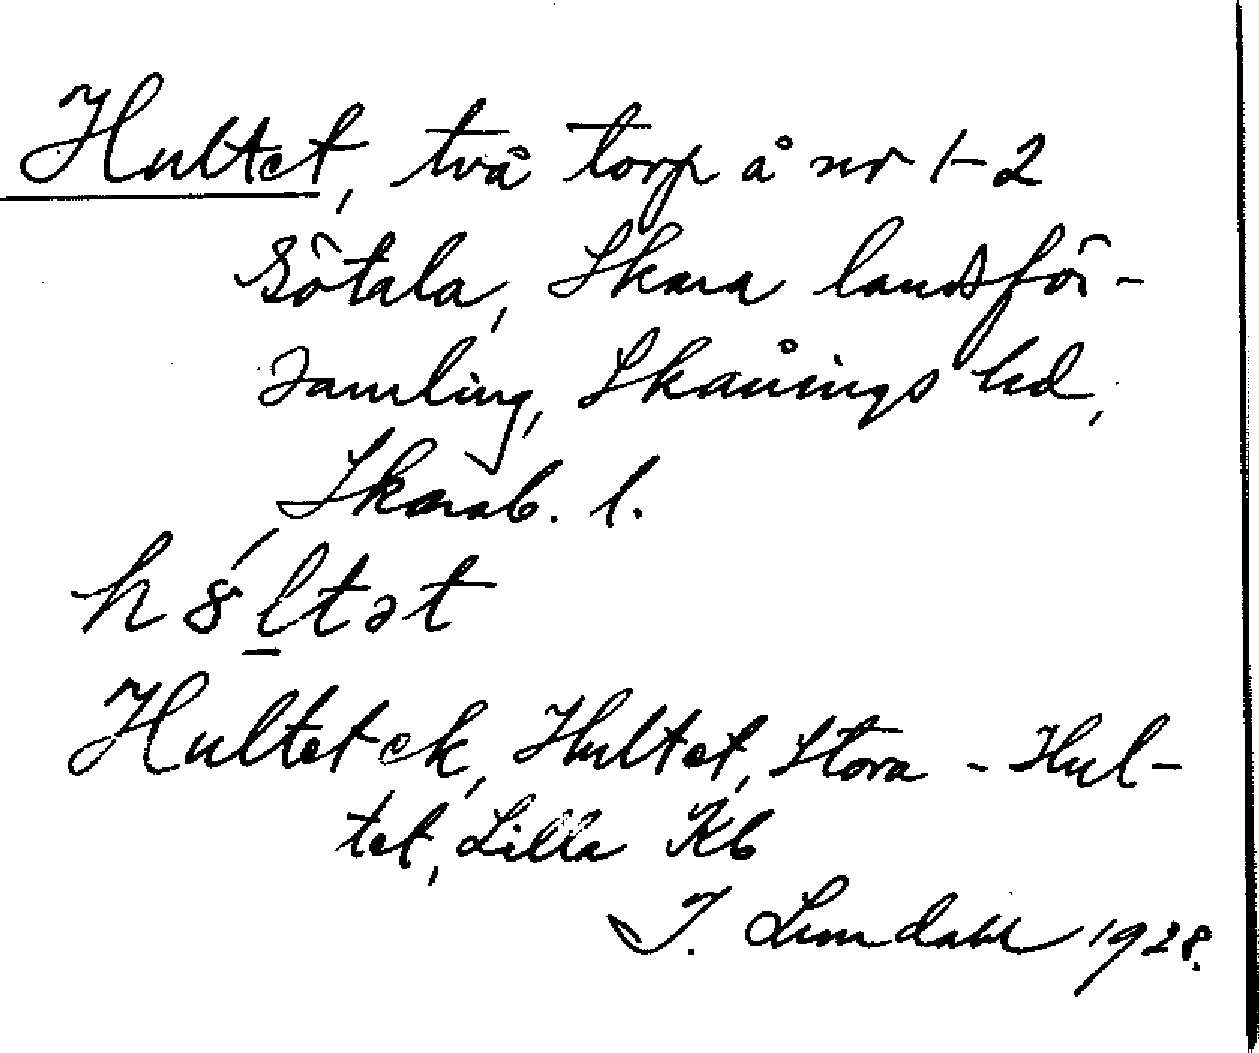 Hultet, två torp å nr 1-2
Götala, Skara landsför-
samling, Skånings hd,
Skarab. l.
h8́l̲tət
Hultet ek, Hultet, Stora - Hul-
tet, Lilla Kb
I. Lundahl 1928.